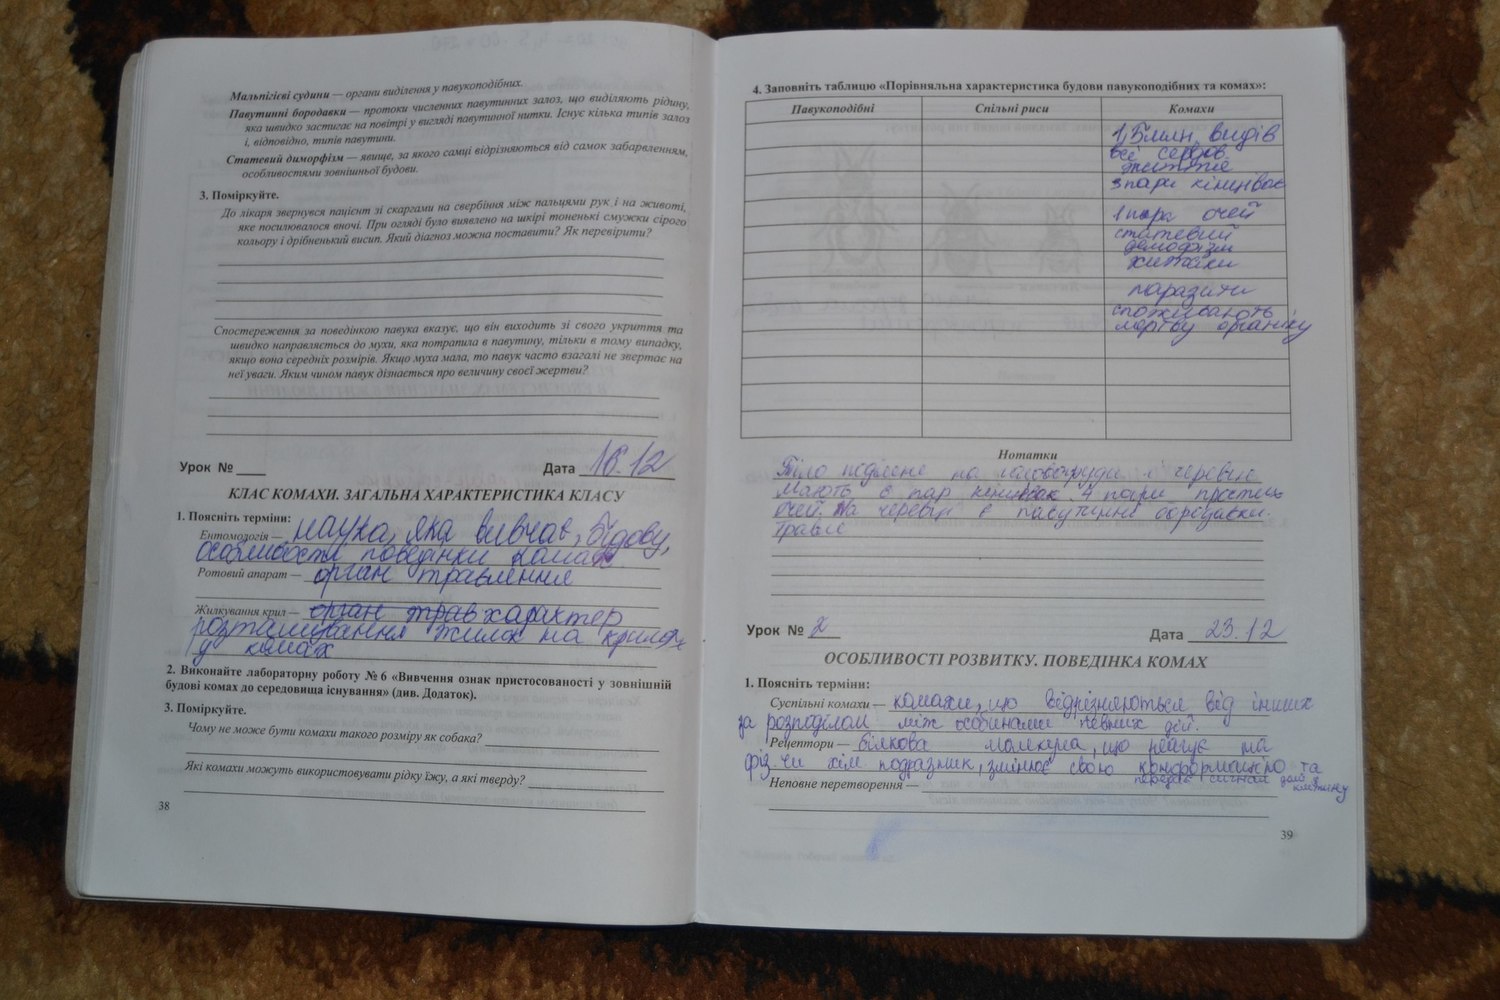 Мальпігієві судини — органи виділення у павукоподібних.
Павутинні бородавки — протоки численних павутинних залоз, що виділяють рідину,
яка швидко застигає на повітрі у вигляді павутинної нитки. Існує кілька типів залоз
і, відповідно, типів павутини.
Статевий диморфізм — явище, за якого самці відрізняються від самок забарвленням,
особливостями зовнішньої будови.
3. Поміркуйте.
До лікаря звернувся пацієнт зі скаргами на свербіння між пальцями рук і на животі,
яке посилювалося вночі. При огляді було виявлено на шкірі тоненькі смужки сірого
кольору і дрібненький висип. Який діагноз можна поставити? Як перевірити?
Спостереження за поведінкою павука вказує, що він виходить зі свого укриття та
швидко направляється до мухи, яка потрапила в павутину, тільки в тому випадку,
якщо вона середніх розмірів. Якщо муха мала, то павук часто взагалі не звертає на
неї уваги. Яким чином павук дізнається про величину своєї жертви?
Урок № ____ Дата 16.12
КЛАС КОМАХИ. ЗАГАЛЬНА ХАРАКТЕРИСТИКА КЛАСУ
1. Поясніть терміни:
Ентомологія — наука, яка вивчає, будову,
особливости поведінки комах
Ротовий апарат — орган травлення
Жилкування крил — орган трав характер
розташування жилок на крилах
у комах
2. Виконайте лабораторну роботу № 6 «Вивчення ознак пристосованості у зовнішній
будові комах до середовища існування» (див. Додаток).
3. Поміркуйте.
Чому не може бути комахи такого розміру як собака?
Які комахи можуть використовувати рідку їжу, а які тверду?
38
4. Заповніть таблицю «Порівняльна характеристика будови павукоподібних та комах»:
Павукоподібні Спільні риси Комахи
1,5 млн. видів
всі серов.
життя
3 пари кінцівок
1 пара очей
статевий
демофізм
хижаки
паразити
споживають
мертву органіку
Нотатки
Тіло поділене на головогруди і черевце
Мають 6 пар кінцівок. 4 пари простих
очей. На череві є павутинні бородавки.
Травле
Урок № 2 Дата 23.12
ОСОБЛИВОСТІ РОЗВИТКУ. ПОВЕДІНКА КОМАХ
1. Поясніть терміни:
Суспільні комахи — комахи, що відрізняються від інших
за розподілом між особинами певних дій.
Рецептори — білкова молекула, що реагує на
фіз. чи хім подразник, змінює свою конформацію та
передає сигнал далі в
клітину
Неповне перетворення —
39